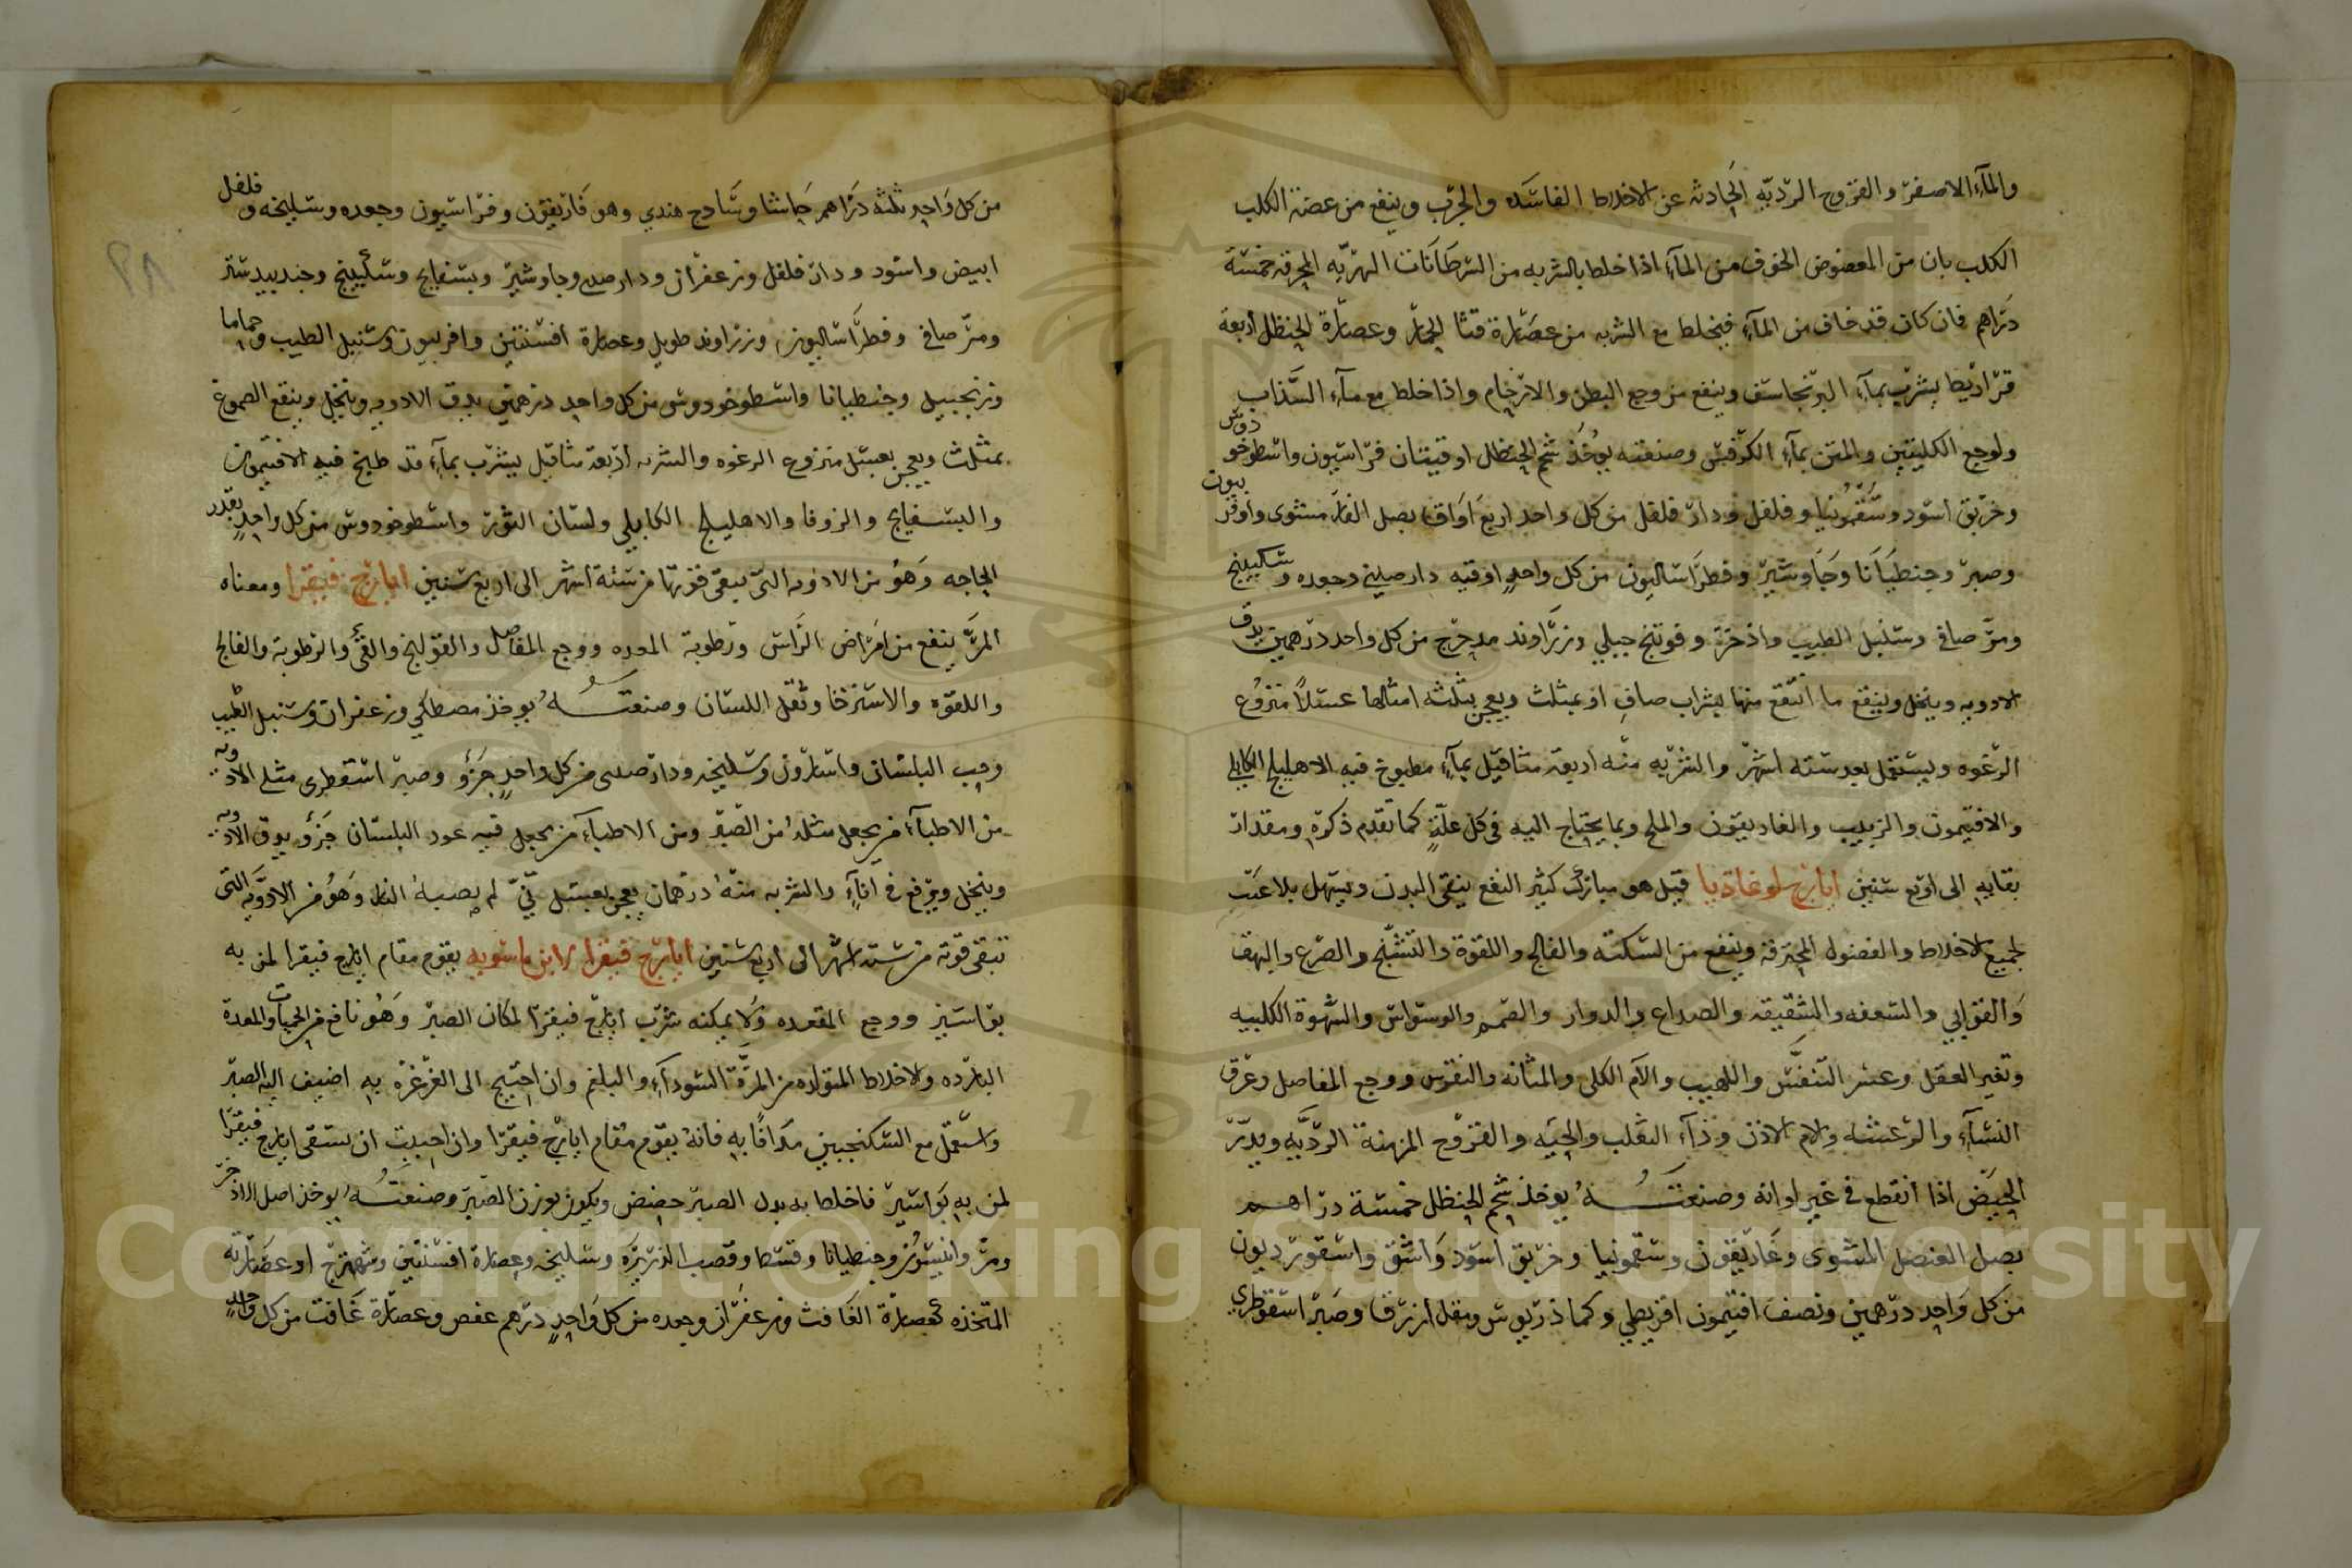 والمآء الاصفر والقروح الرديّه الحَادثه عن الاخلاط الفاسَده والجرَب وينفع من عضة الكلب
الكلب بان من المعضوض الخوف من المآء اذا خلط بالشربه من السَرطَانَات النهريّه المحرقه خمسَة
دَراهم فان كان قد خاف من المآء فيخلط مع الشربه من عصَارة قثا الحِمَار وعصَارَة الحنظل أربعَة
قرَاريط يشرَب بمآء البرنجاسَف وينفع من وجع البطن والارحَام واذا خلط مع مآء السَّذاب
ولوجع الكليتين والمتن بمآء الكرَفس وصنعته يوخَذ شحم الحنظل اوقيتان فرَاسيون واسطوخودوس
وخربق اسوَد وسَقمُونيا وفلفل ودار فلفل من كل واحد اربع أوَاق بصل الفار مشوى وافربيون
وصبر وجنطيَانَا وجَاوشير وفطرَاسَاليون من كل واحدٍ اوقيه دارصيني وجعده وسكبينج
ومرّ صافى وسنبل الطيب واذخر وفوتنج جبلي وزرَاوند مدحرَج من كل واحد درهمين يدق
الادويه وينخل وينقع ما انتقع منها بشراب صافٍ او بمثلث ويعجن بثلثه امثالها عسَلاً منزوُع
الرغوه ويستعمل بعد ستة اشهر والشربه منه اربعة مثاقيل بمآء مطبوخ فيه الاهليلج الكابلى
والافتيمون والزبيب والغاريقون والملح وبما يحتاج اليه فى كل علّةٍ كما تقدم ذكره ومقدار
بقايه الى اربع سنين ايارج لوغاديا قيل هو مبارَك كثير النفع ينقى البدن ويسهل بلا عَنَت
لجميع الاخلاط والفضول المحترقه وينفع من السَكته والفالج واللقوة والتشنّج والصرع والبهق
وَالقوَابي والسعفه والشقيقه والصداع والدوار والصَمم والوسوَاس والشهوة الكلبيه
وتغير العقل وعسر التنفّس واللهيب والآم الكلى والمثانه والنقرس ووجع المفاصل وعرق
النسَآء والرعشه والام الاذن ودَآء الثعلب والحيَه والقروُح المزمنة الرديَّه ويدرّ
الحيض اذا انقطع في غير اوانه وصنعتـــه يوخذ شحم الحنظل خمسَة درَاهــم
بصل العنصل المشوى وغَاريقون وسقمونيا وخربق اسوَد وَاشق واسقورديون
من كل وَاحد درهمين ونصف افتيمون اقريطى وكماذريوس ومقل ازرق وصَبر اسقوطري
من كل وَاحِد ثلثة دَرَاهم حَاشا وسَادج هندي وهو فَاريقون وفرَاسيون وجعده وسليخه وفلفل
ابيض واسود ودار فلفل وزعفران ودارصينى وجاوشير وبسفايج وسكبينج وجندبيدستر
ومرّ صافى وفطرَاسَاليون وزرَاوند طويل وعصَارة افسنتين وافربيون وسنبل الطيب وحماما
وزنجبيل وجنطيانا واسطوخودوس من كل واحد درهمين يدق الادويه وتنخل وينقع الصموغ
بمثلث ويعجن بعسَل منزوع الرغوه والشربه أربعة مثاقيل يشرب بمآء قد طبخ فيه الافتيمون
والبسـفايج والزوفا والاهليلج الكابلي ولسَان الثور واسطوخودوس من كل واحدٍ بقدر
الحاجه وَهوُ من الادويه التى يبقى قوتها من سَتة اشهر الى اربع سنين ايارَج فيقرَا ومعناه
المرّ ينفع من امرَاض الرَاس ورَطوبة المعده ووجع المفاصل والقولنج والقئ والرطوبة والفالج
واللقوَه والاستَرخا وثقل اللسَان وصنعتــــهُ يوخذ مصطكي وزعفران وسنبل الطيب
وحب البلسَان واسَارون وسليخه ودارصينى من كل واحدٍ جزؤ وصبر اسقطرى مثلى الادويه
من الاطبآء من يجعل مثله من الصَبر ومن الاطبآء من يجعل فيه عود البلسَان جزؤ يدق الادويه
وينخل ويرفع فى انآءٍ والشربه منهُ درهمان يعجن بعسَل نّىّ لم يصبهُ النار وَهوُ من الادويه التى
تبقى قوته من ستة اشهر الى اربع سنين ايارَج فيقرا لابن ماسويه يقوم مقام ايارج فيقرا لمن به
بوَاسَير ووجع المقعده ولا يمكنه شرب ايارَج فيقرَا لمكان الصبر وَهوُ نافع من الحميات والمعدة
البارده والاخلاط المتولده من المرّة السَودآء والبلغم وان احتيج الى الغرغرَه بهِ اضيف اليه الصبرَ
واستعمل مع السكنجبين مدَافًا به فانهُ يقوم مقام ايارج فيقرَا وان احببت ان يسقى ايارج فيقرا
لمن به بَوَاسير فاخلط به بدل الصبر حضض ويكون بوزن الصَبر وصنعتــهُ يوخذ اصل الاذخر
ومرّ وانيسون وجنطيانا وقسط وقصب الذريرَه وسليخه وعصَارة افسنتين وشهترج او عصَارته
المتخذه كعصَارَة الغافث وزعفَران وجعده من كل وَاحدٍ درهم عفص وعصَارَة غَافت من كل واحدٍ